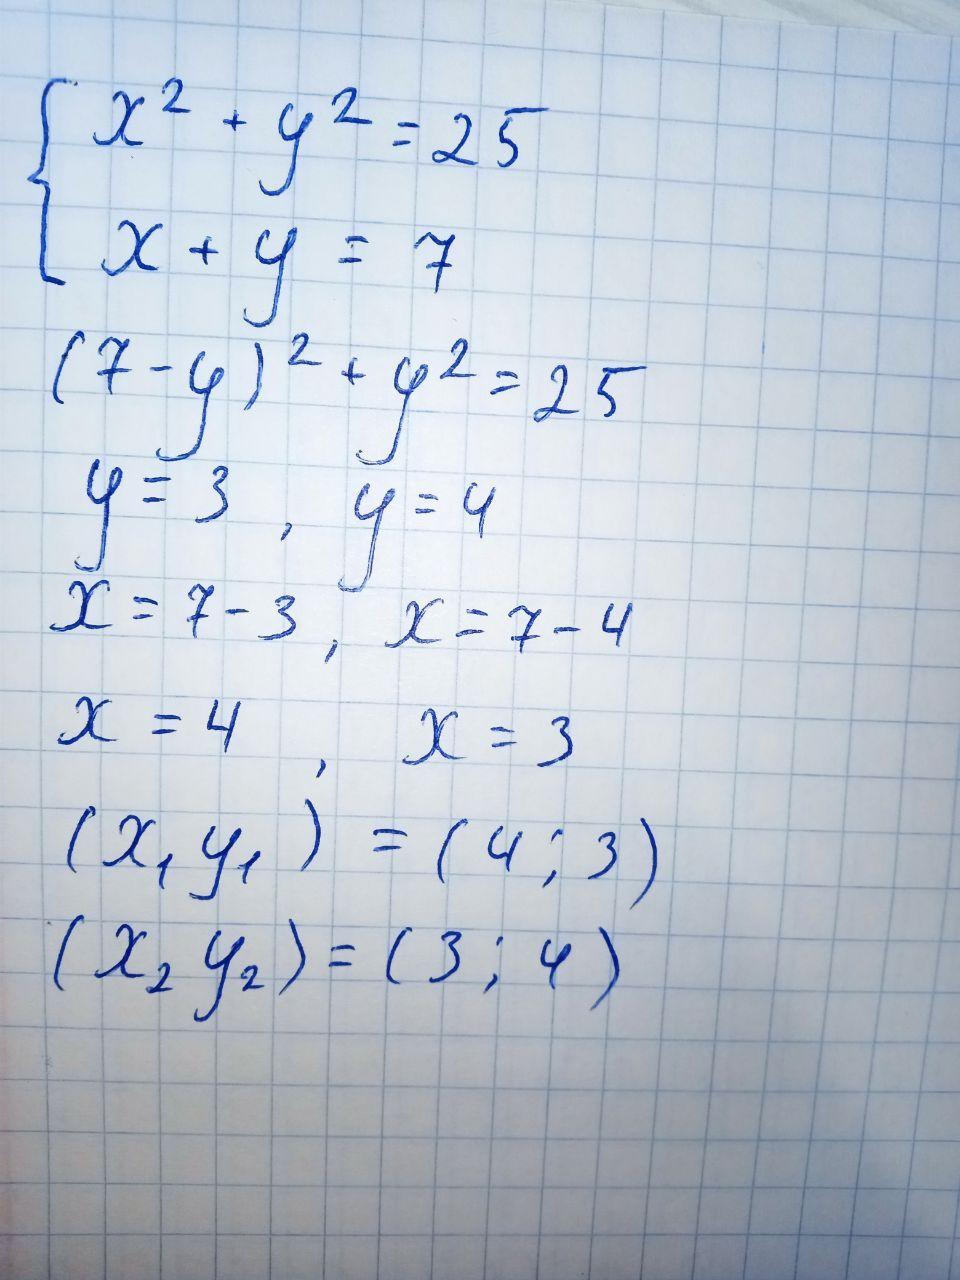 { x² + y² = 25
x + y = 7
(7 - y)² + y² = 25
y = 3 , y = 4
x = 7 - 3 , x = 7 - 4
x = 4 , x = 3
(x₁ y₁) = (4 ; 3)
(x₂ y₂) = (3 ; 4)